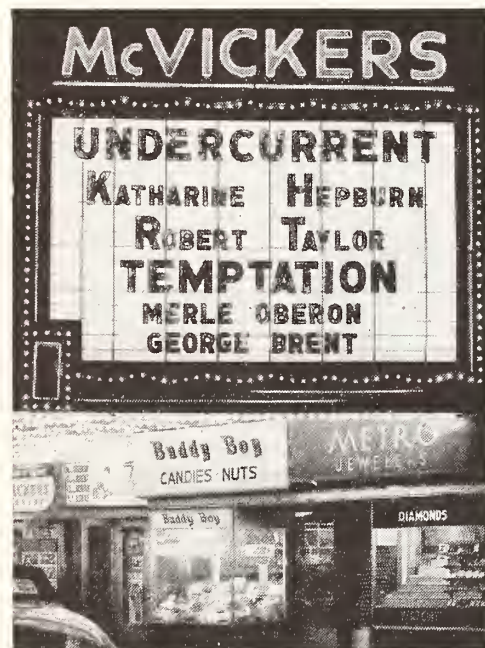 McVICKERS
UNDERCURRENT
KATHARINE HEPBURN
ROBERT TAYLOR
TEMPTATION
MERLE OBERON
GEORGE BRENT
Buddy Boy
CANDIES NUTS
METRO
JEWELERS
Buddy Boy
DIAMONDS